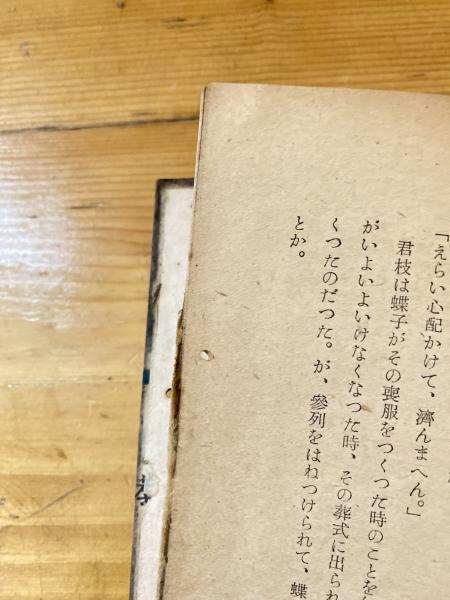 「えらい心配かけて、濟んまへん。」
君枝は蝶子がその喪服をつくつた時のことを
がいよいよいけなくなつた時、その葬式に出られ
くつたのだつた。が、參列をはねつけられて、蝶
とか。